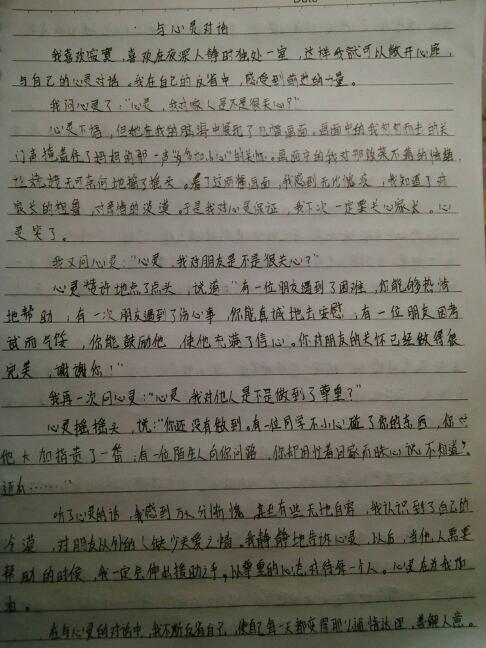 与心灵对话
我喜欢寂寞,喜欢在夜深人静时独处一室,这样我就可以敞开心扉,
与自己的心灵对话。我在自己的反省中,感受到前进的力量。
我问心灵了:"心灵,我对家人是不是很关心?"
心灵不语,但她在我的脑海中展现了几幅画面。画面中的我匆匆而去的关
门声掩盖住了妈妈的那一声"多加小心"的关怀。画面中的我对那
无可奈何地摇了摇头。看了这两幅画面,我感到无比惭愧,我知道了对
家长的,对亲情的淡漠。于是我对心灵保证,我下次一定要关心家长。心
灵笑了。
我又问心灵:"心灵,我对朋友是不是很关心?"
心灵赞许地点了点头,说道:"有一位朋友遇到了困难,你能够热情
地帮助;有一次朋友遇到了伤心事,你能真诚地去安慰;有一位朋友因考
试而气馁,你能鼓励他,使他充满了信心。你对朋友的关怀已经做得很
完美,谢谢你!"
我再一次问心灵:"心灵,我对他人是不是做到了尊重?"
心灵摇摇头,说:"你还没有做到。有一位同学不小心碰了你的东西,你对
他大加指责了一番;有一位陌生人向你问路,你却因忙着回家而昧心说不知道?
还有……"
听了心灵的话,我感到万分惭愧,甚至有些无地自容,我认识到了自己的
冷漠,对朋友以外的人缺少关爱之情。我静静地告诉心灵,以后,当他人需要
帮助的时候,我一定会伸出援助之手。以尊重的心态对待每一个人。心灵在为我加
油。
在与心灵的对话中,我不断反省自己,使自己每一天都变得那么通情达理,善解人意。